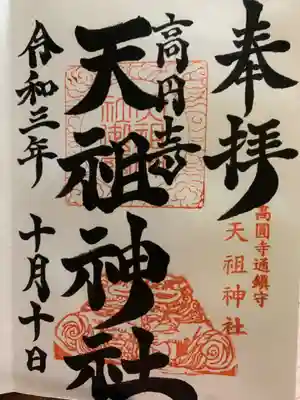 奉拝
高圓寺通鎮守
天祖神社
高円寺
天祖神社
令和三年 十月十日